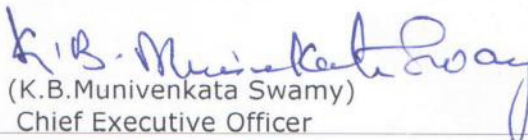 K.B. Munivenkata Swamy
(K.B.Munivenkata Swamy)
Chief Executive Officer